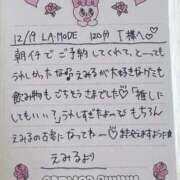 12/9 LA.MODE 120分 T様へ♡
朝イチでご予約してくれて、とーっても
うれしかったな えみるが大好きなけても
飲み物もごちそうさまでした♡「推しに
してもいい?」うれしすぎたよーっ もちろん
えみるの古客になってねー♡
えみるより